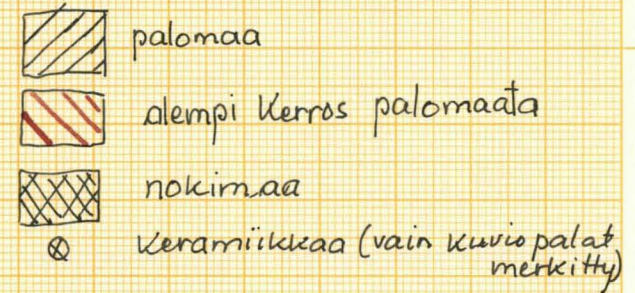 palomaa
alempi kerros palomaata
nokimaa
keramiikkaa (vain kuviopalat
merkitty)